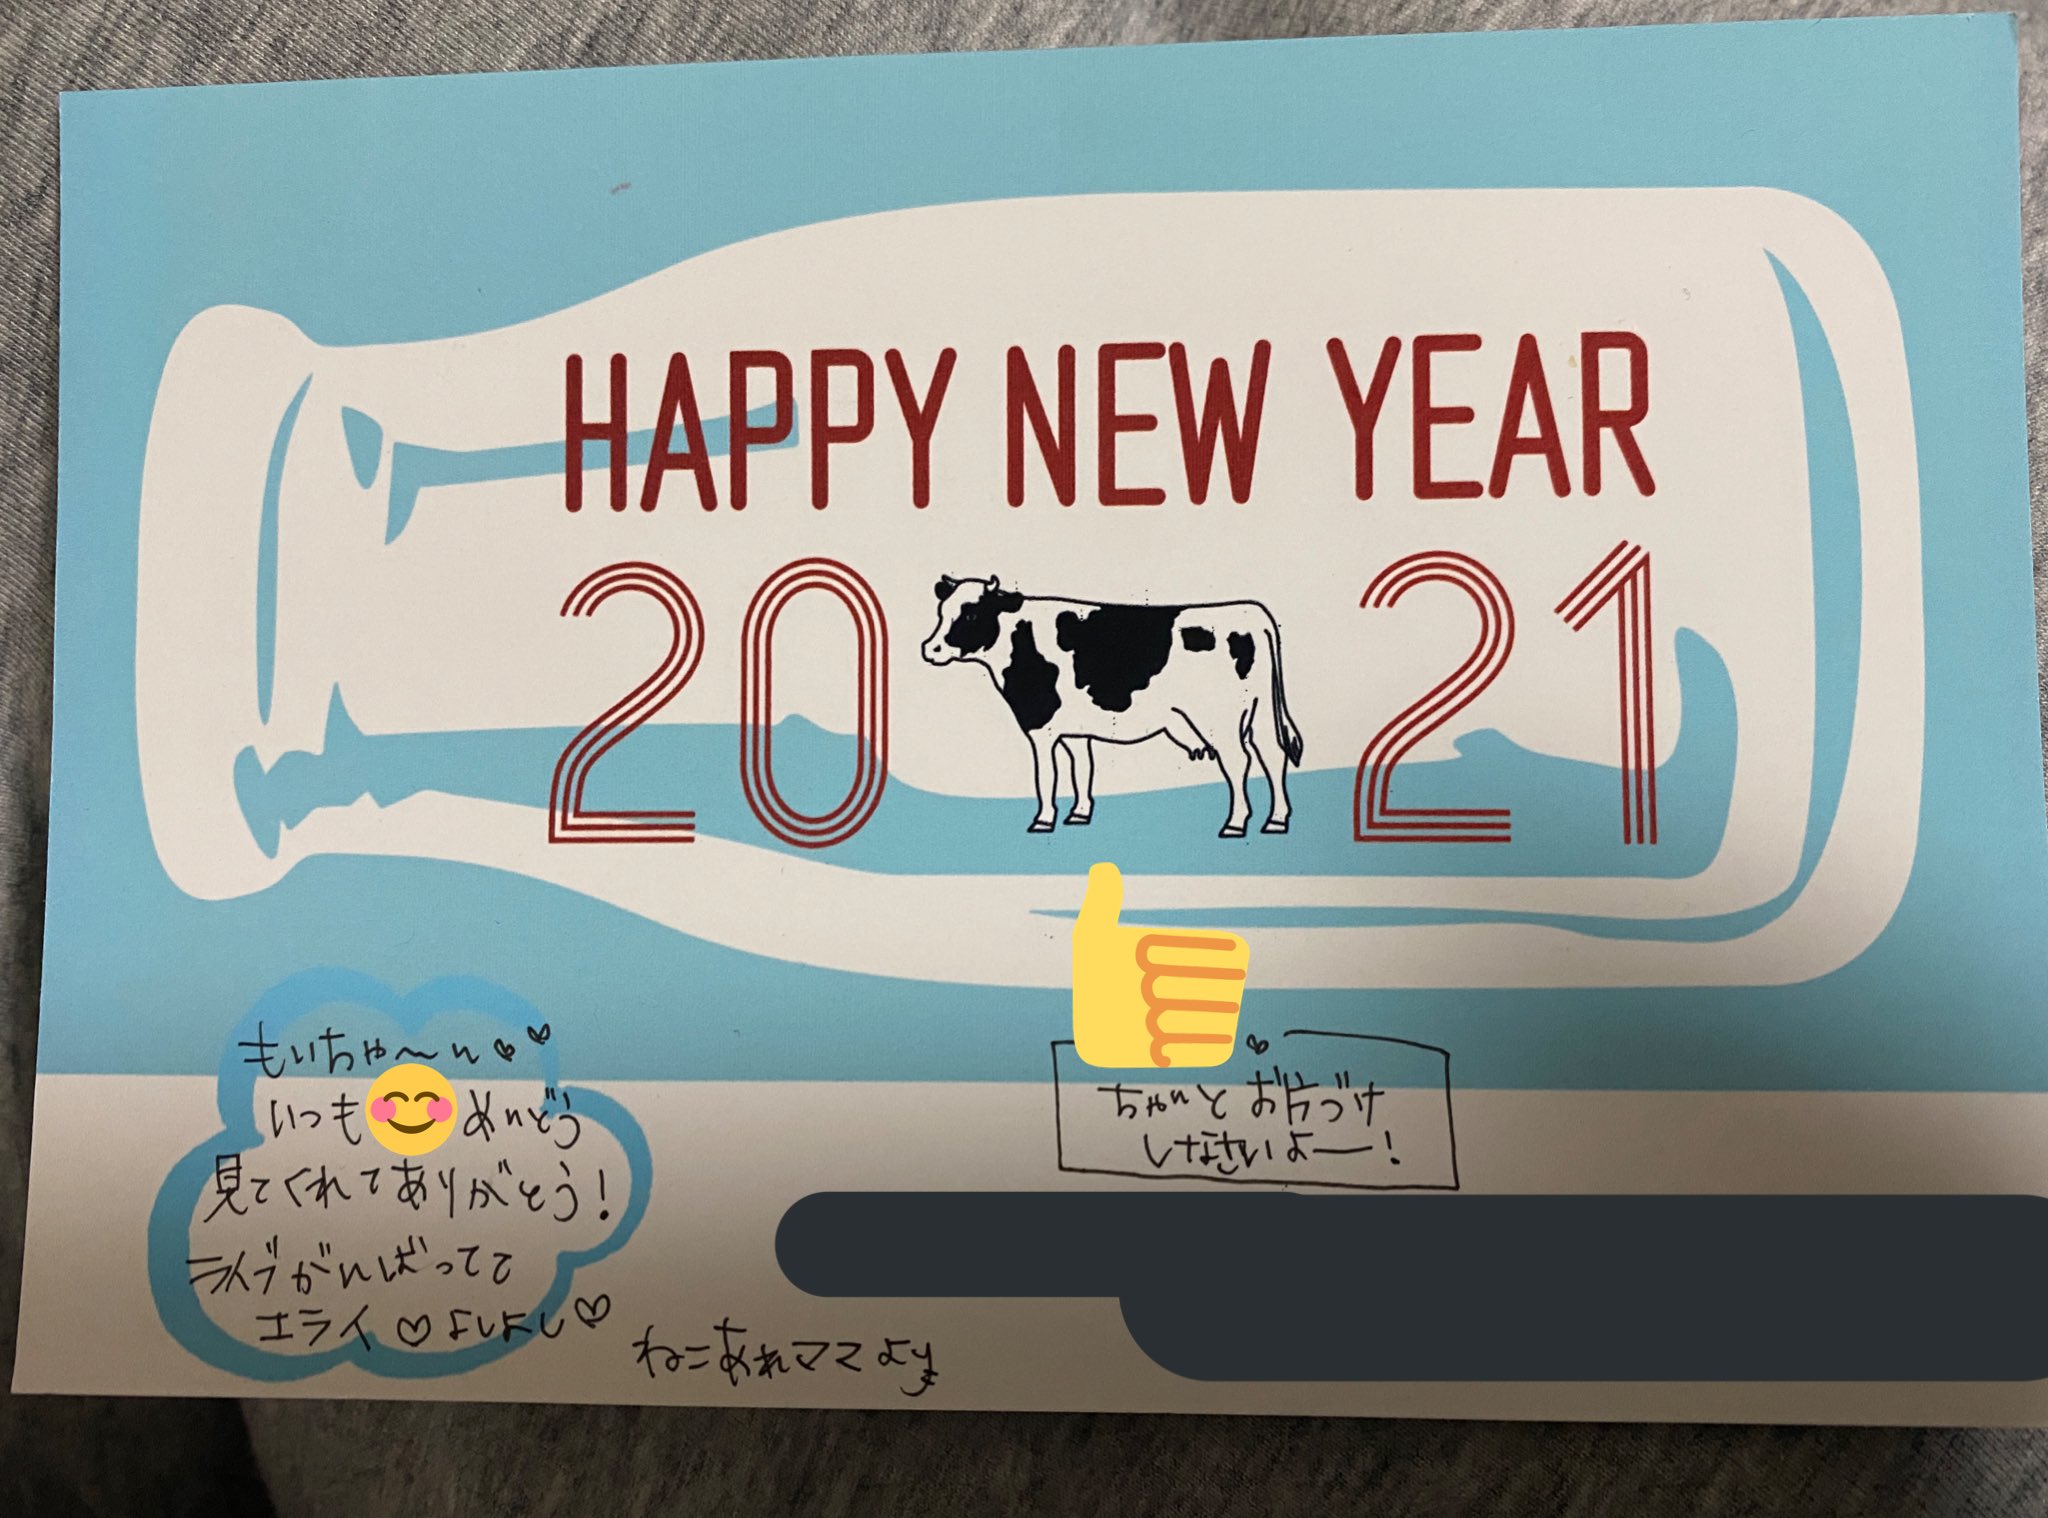 HAPPY NEW YEAR
2021
もいちゃ〜ん♥♥
いつも😊めんどう
見てくれてありがとう!
ライブがんばってて
エライ♡よしよし♡
ちゃんとお片づけ
しなさいよー!
ねこあれママより